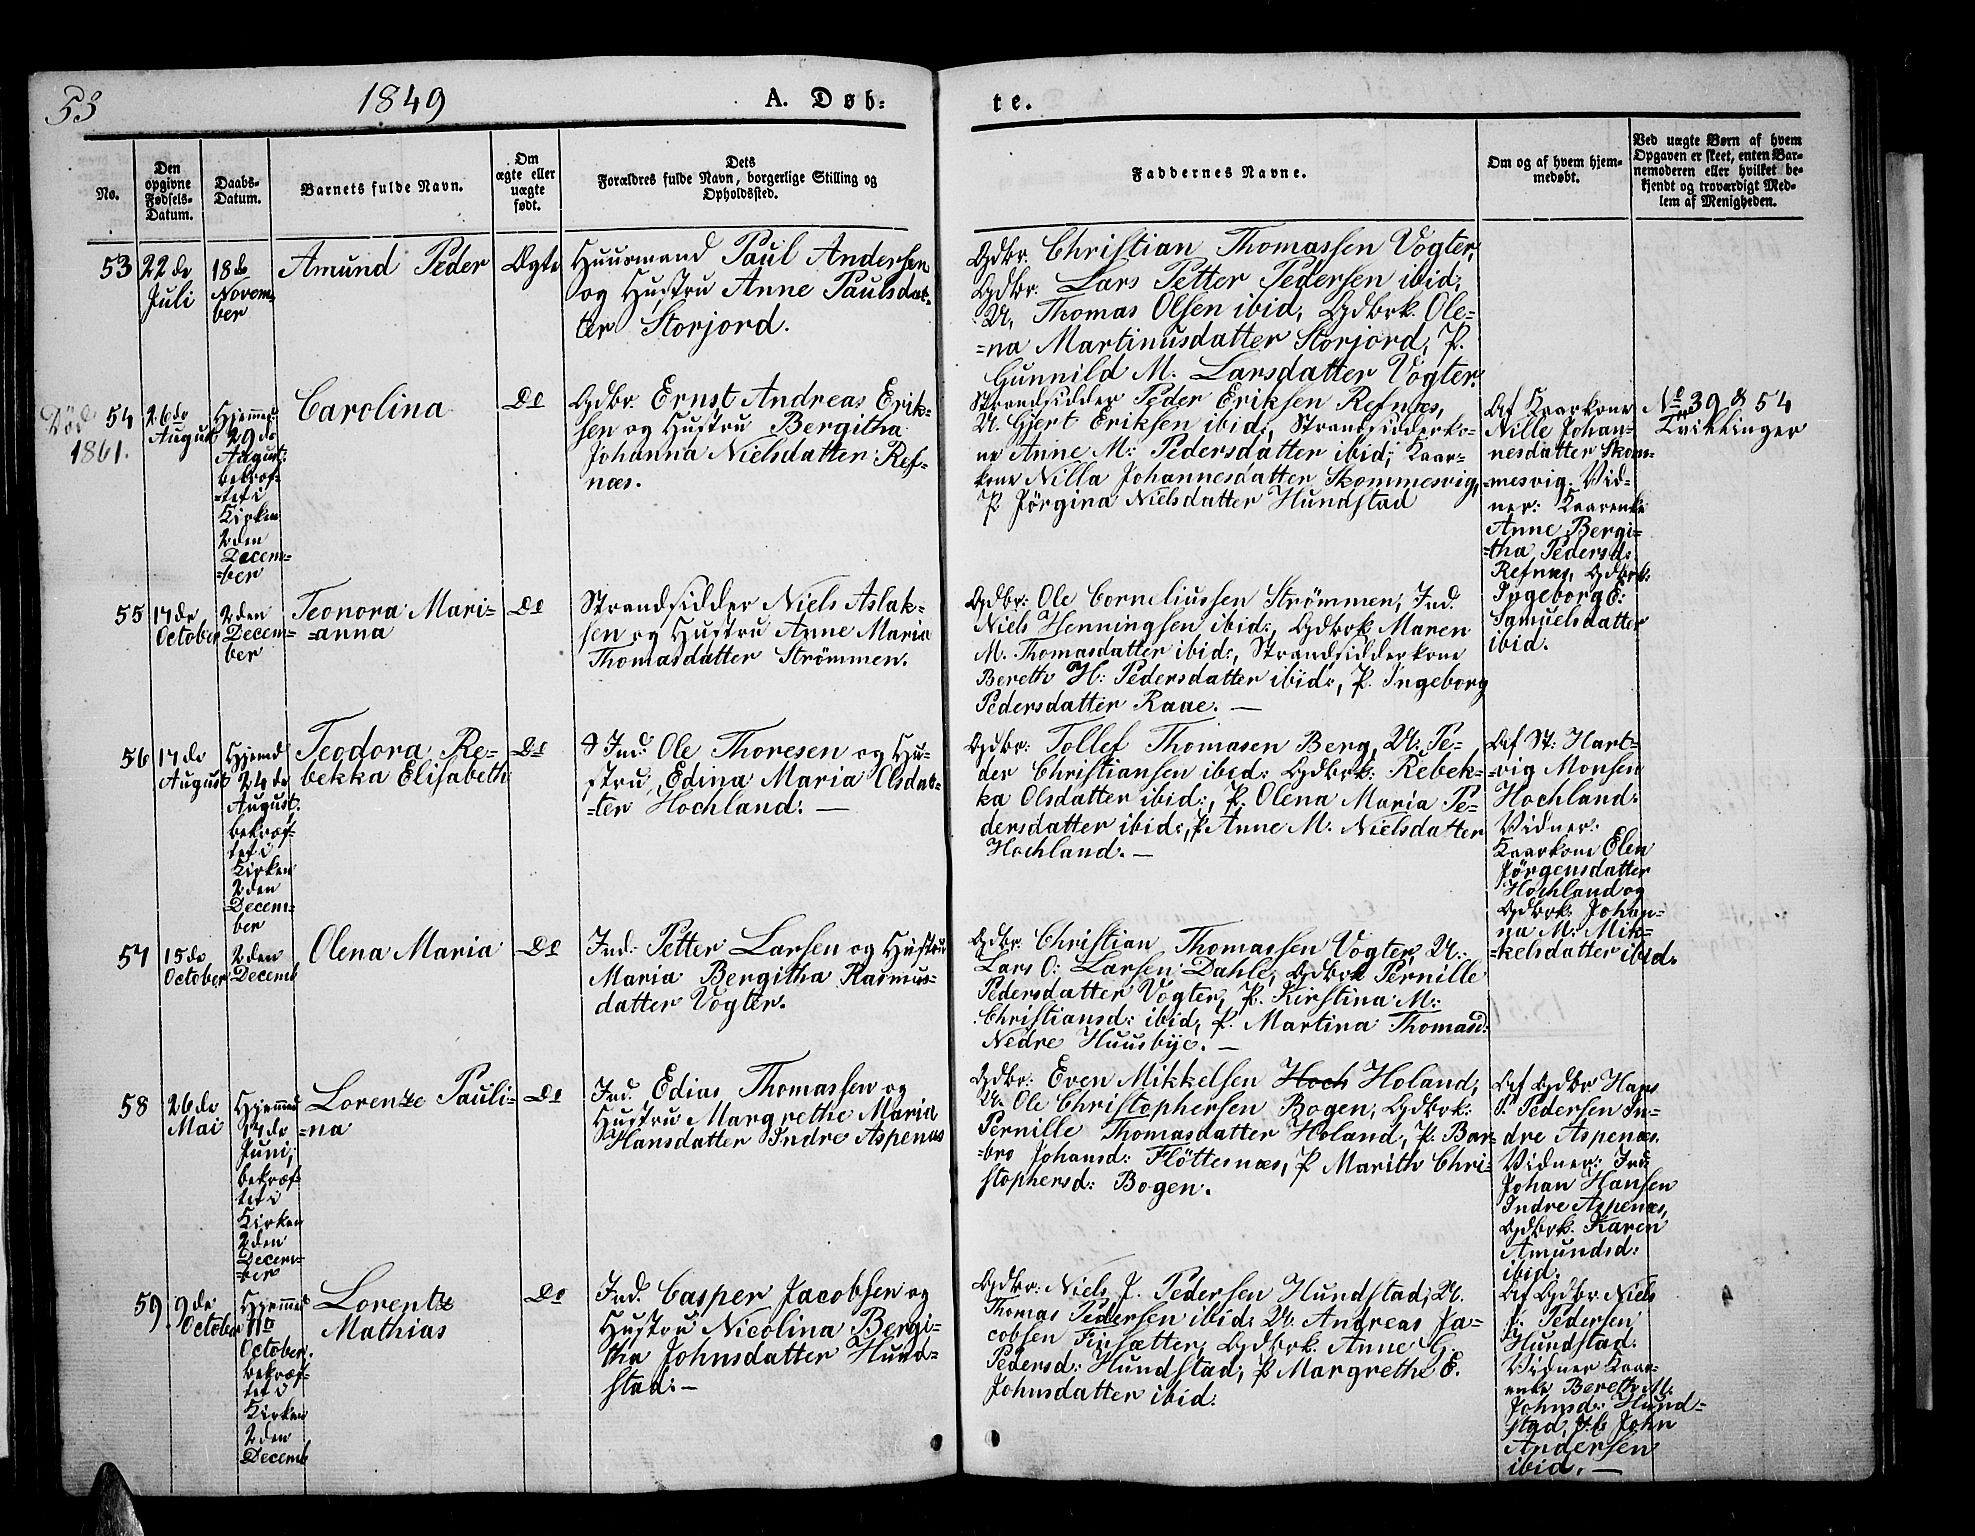 53
1849
A. Døb=
te.
No.
Den opgivne Fødsels-Datum.
Daabs-Datum.
Barnets fulde Navn.
Om ægte eller uægte født.
Dets
Forældres fulde Navn, borgerlige Stilling og
Opholdssted.
Faddernes Navne.
Om og af hvem hjem-
medøbt.
Ved uægte Børn af hvem
Opgaven er skeet, enten Bar-
nemoderen eller hvilket be-
kjendt og troværdigt Med-
lem af Menigheden.
53
22de
Juli
18de
Novem
ber
Amund Peder
Ægte
Huusmand Paul Andersen
og Hustru Anne Paulsdat-
ter Storjord.
Gdbr. Christian Thomassen Vogter,
Gdbr: Lars Petter Pedersen ibid,
U. Thomas Olsen ibid, Gdbrk. Ole-
=na Martinusdatter Storjord, P.
Gunnild M. Larsdatter Vogter.
Død
1861.
54
26de
August
Hjemmed
29de
August:
bekræf-
=tet i
Kirken
2den
Decem=
=ber
Carolina
Do
Gdbr. Ernst Andreas Erik-
sen og Hustru Bergitha
Johanna Nielsdatter Ref-
næs.
Strandsidder Peder Eriksen Refnæs,
U. Gjert Eriksen ibid:, Strandsidderko-
ne Anne M: Pedersdatter ibid; Kaar-
kone Nilla Johannesdatter Skommesvig,
P. Jörgina Nielsdatter Hundstad
Af Kaarkone
Nille Johan-
nesdatter Skom-
=mesvig. Vid-
ner: Kaarenke
Anne Bergi-
=tha Pedersd:
Refnæs, Gdbrk:
Ingeborg E:
Samuelsdatter
ibid.
No 39 & 54
Tvillinger
55
17de
October
2den
Decem=
ber
Teonora Mari-
=anna
Do
Strandsidder Niels Aslak-
sen og Hustru Anne Maria
Thomasdatter Strömmen.
Gdbr: Ole Corneliussen Strömmen, Ind.
Niels Henningsen ibid:, Gdbrk Maren
M. Thomasdatter ibid:, Strandsidderkone
Bereth H: Pedersdatter ibid:, P. Ingeborg
Pedersdatter Raae. —
56
17de
August
Hjemd
24de
August.
bekræf-
tet i
Kirken
2den
Decem=
ber
Teodora Re-
bekka Elisabeth
Do
Ind. Ole Thoresen og Hu-
stru, Edina Maria Olsdat-
=ter Hochland: —
Gdbr: Tollef Thomasen Berg, U: Pe-
der Christiansen ibid: Gdbrk: Rebek-
ka Olsdatter ibid:, P. Olena Maria Pe-
dersdatter ibid:, P. Anne M: Nielsdatter
Hochland. —
Af St: Hart-
=vig Monsen
Hochland.
Vidner:
Kaarkone Elen
Jörgensdatter
Hochland og
Gdbrk: Johan-
na M: Mik-
=kelsdatter ibid.
57
15de
October
2den
Decemb
Olena Maria
Do
Ind. Petter Larsen og Hustru
Maria Bergitha Rasmus-
datter Vogter.
Gdbr. Christian Thomassen Vogter, U.
Lars O: Larsen Dahle, Gdbrk Pernille
Pedersdatter Vogter, P. Kirstina M:
Christiansd: ibid, P. Martina Thomasd:
Nedre Huusbye. —
58
26de
Mai
Hjemmed
7de
Juni,
bekræf-
tet i
Kirken
2den
Decem=
=ber
Lorentze Pauli-
=na
Do
Ind. Edias Thomassen og
Hustru Margrethe Maria
Hansdatter Indre Aspenæs
Gdbr: Even Mikkelsen Hoch Holand,
U. Ole Christophersen Bogen, Gdbrk:
Pernille Thomasdatter Holand, P. Bar-
=bro Johansd: Flöttesnæs, P Marith Chri-
stophersd: Bogen.
Af Gdbr Hans
P. Pedersen In-
dre Aspenæs.
Vidner: Ind:
Johan Hansen
Indre Aspenæs,
Gdbrk: Karen
Amundsd:
ibid.
59
9de
October
Hjemmed
October.
bekræf-
tet i
Kirken
2den
Decemb
Lorentz
Mathias
Do
Ind. Casper Jacobsen og
Hustru Nicolina Bergi-
tha Johnsdatter Hund-
stad: —
Gdbr: Niels J. Pedersen Hundstad; U.
Thomas Pedersen ibid: U. Andreas Ja-
cobsen Firsætter, Gdbrk. Anne G.
Pedersd: Hundstad, P Margrethe E.
Johnsdatter ibid:
Af Gdbr Niels
J. Pedersen
Hundstad.
Vidner Kaar-
enke Bereth M:
Johnsd: Hund-
stad, John
Andersen
ibid. —